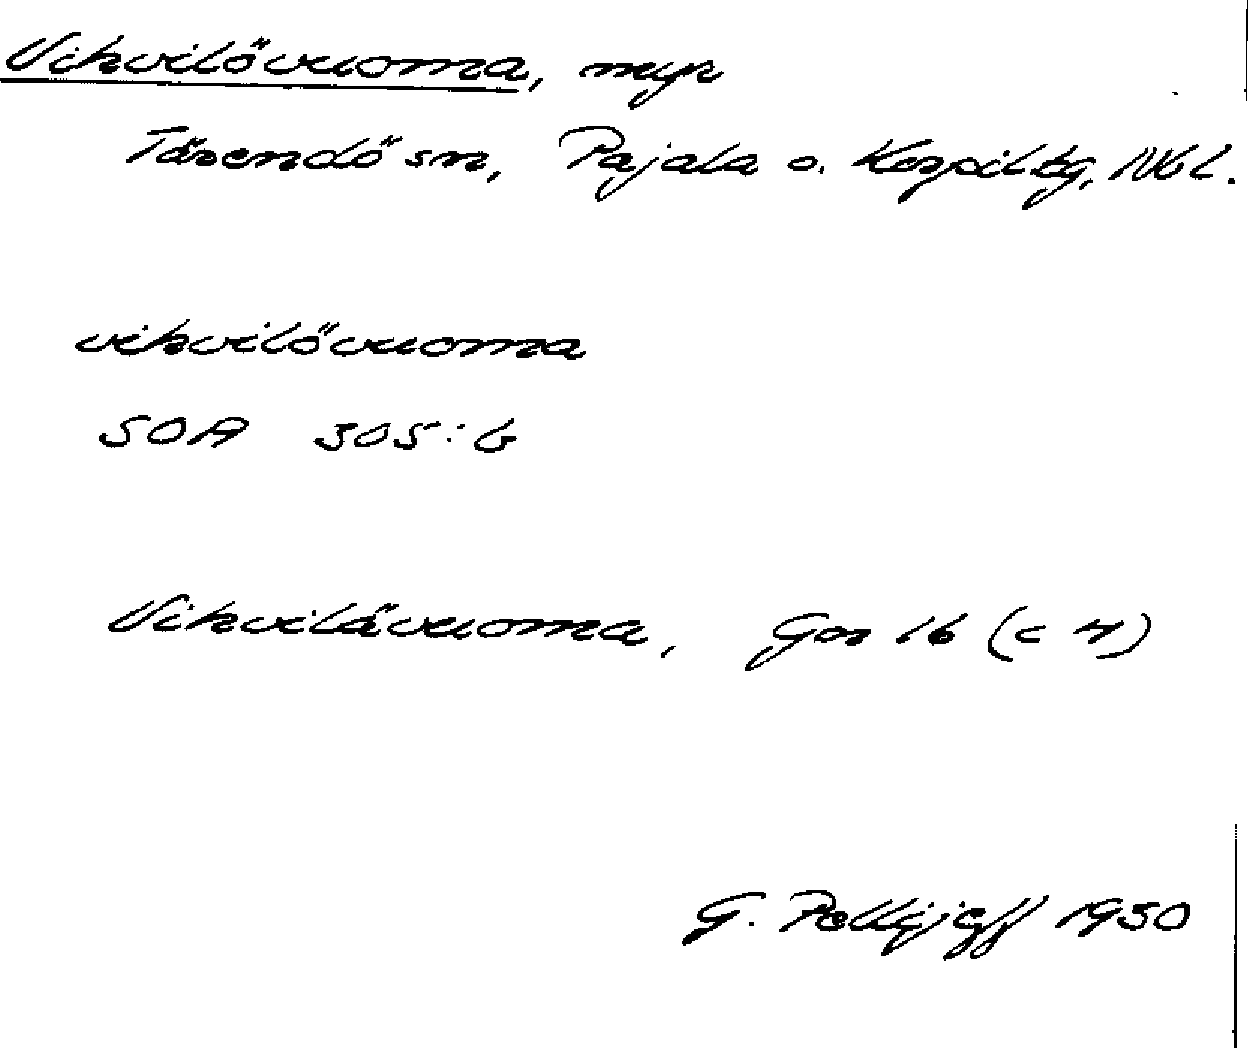 Vihvilövuoma, myr
Tärendö sn, Pajala o. Korpil. tg, Nbl.
vihvilövuoma
SOA 305: 6
Vihvilävuoma, Gor 16 (c 4)
G. Pellijeff 1950